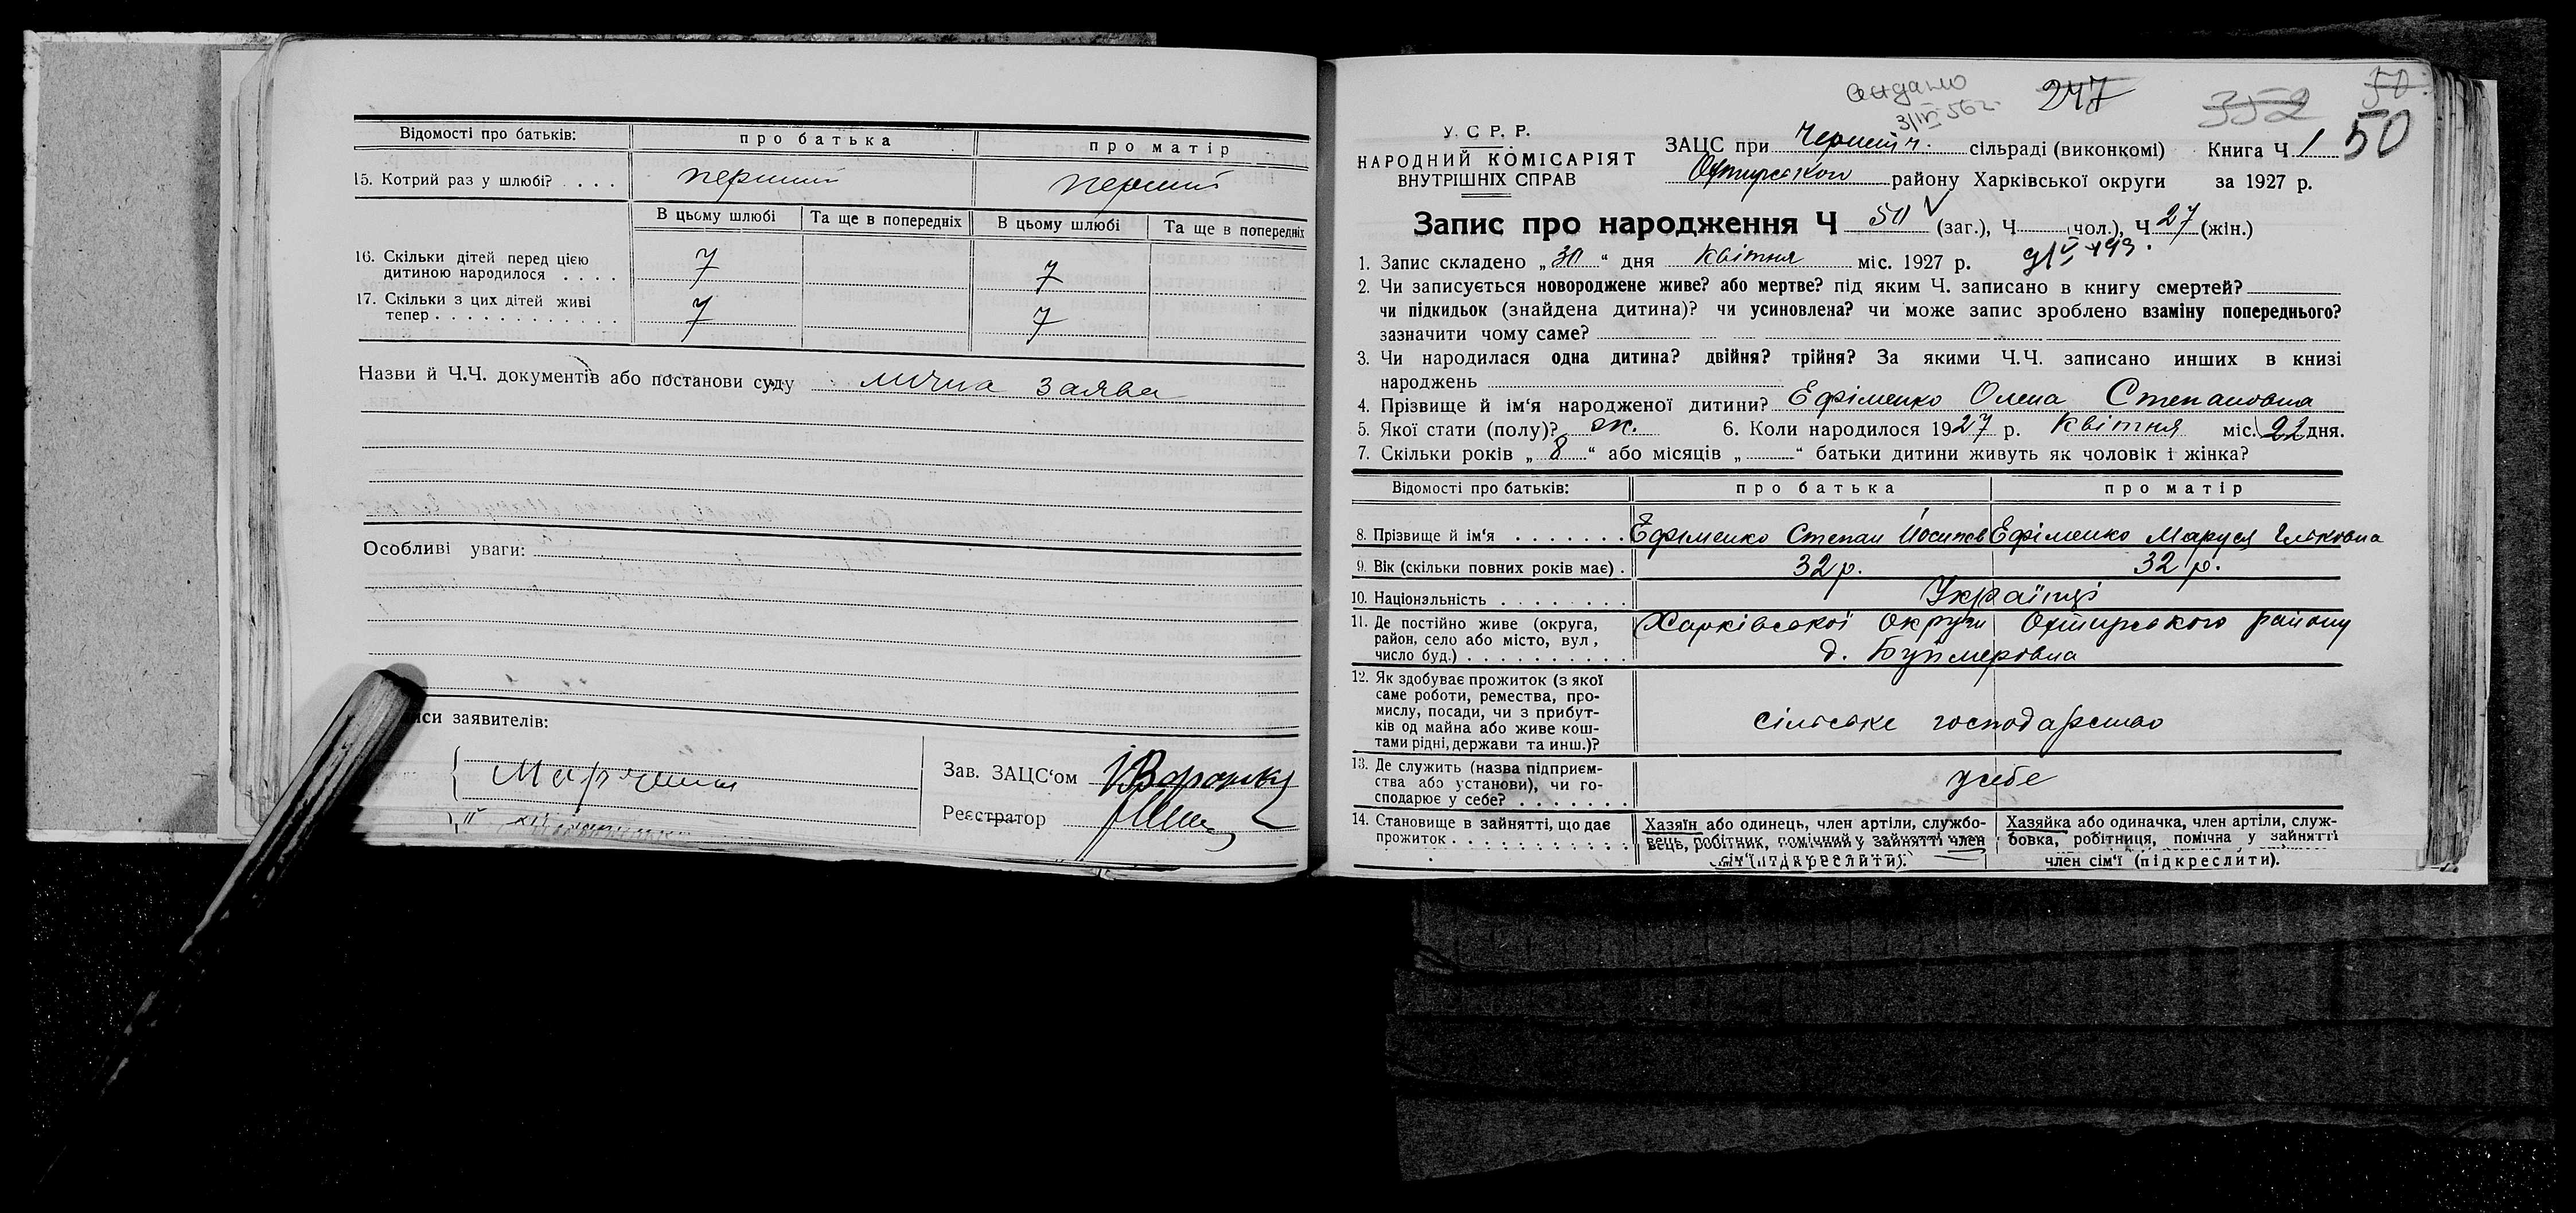 Відомості про батьків: про батька про матір
15. Котрий раз у шлюбі? . . . . перший перший
В цьому шлюбі Та ще в попередніх В цьому шлюбі Та ще в попередніх
16. Скільки дітей перед цією
дитиною народилося . . . . 7 7
17. Скільки з цих дітей живі
тепер . . . . . . . . . . . . . 7 7
Назви й Ч.Ч. документів або постанови суду лична заява
Особливі уваги:
иси заявителів:
Зав. ЗАЦС‘ом
Реєстратор
видано 247 352 50
3/IV 56 г.
У. С. Р. Р.
НАРОДНИЙ КОМІСАРІЯТ
ВНУТРІШНІХ СПРАВ
ЗАЦС при сільраді (виконкомі) Книга Ч 1 50
району Харківської округи за 1927 р.
Запис про народження Ч 50 (заг.), Ч (чол.), Ч 27 (жін.)
1. Запис складено „ 30 “ дня Квітня міс. 1927 р.
2. Чи записується новороджене живе? або мертве? під яким Ч. записано в книгу смертей?
чи підкидьок (знайдена дитина)? чи усиновлена? чи може запис зроблено взаміну попереднього?
зазначити чому саме?
3. Чи народилася одна дитина? двійня? трійня? За якими Ч.Ч. записано инших в книзі
народжень
4. Прізвище й ім‘я народженої дитини? Ефіменко Олена Степановна
5. Якої стати (полу)? ж. 6. Коли народилося 1927 р. Квітня міс. 22 дня.
7. Скільки років „ 8 “ або місяців „ “ батьки дитини живуть як чоловік і жінка?
Відомості про батьків: про батька про матір
8. Прізвище й ім‘я . . . . . . . Ефіменко Степан Йосипов Ефіменко Маруся Ильковна
9. Вік (скільки повних років має) . 32 р. 32 р.
10. Національність . . . . . . . . Українці
11. Де постійно живе (округа, Харківської Округи Охтирського району
район, село або місто, вул,
число буд.) . . . . . . . . . . д. Буймеровка
12. Як здобуває прожиток (з якої
саме роботи, ремества, про-
мислу, посади, чи з прибут-
ків од майна або живе кош-
тами рідні, держави та инш.)? сільське господарство
13. Де служить (назва підприєм-
ства або установи), чи го-
сподарює у себе? . . . . . . . у себе
14. Становище в зайнятті, що дає
прожиток . . . . . . . . . . .
Хазяїн або одинець, член артіли, службо-
вець, робітник, помічний у зайнятті член
сім‘ї (підкреслити).
Хазяйка або одиначка, член артіли, служ-
бовка, робітниця, помічна у зайнятті
член сім‘ї (підкреслити).